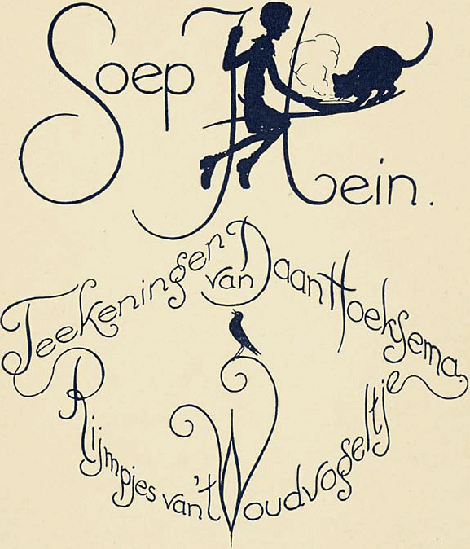 Soep Hein.
Teekeningen van Daan Hoeksema.
Rijmpjes van 't Woudvogeltje